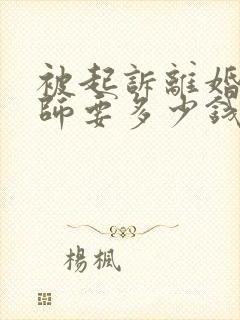 被起訴離婚
師要多少錢
楊楓